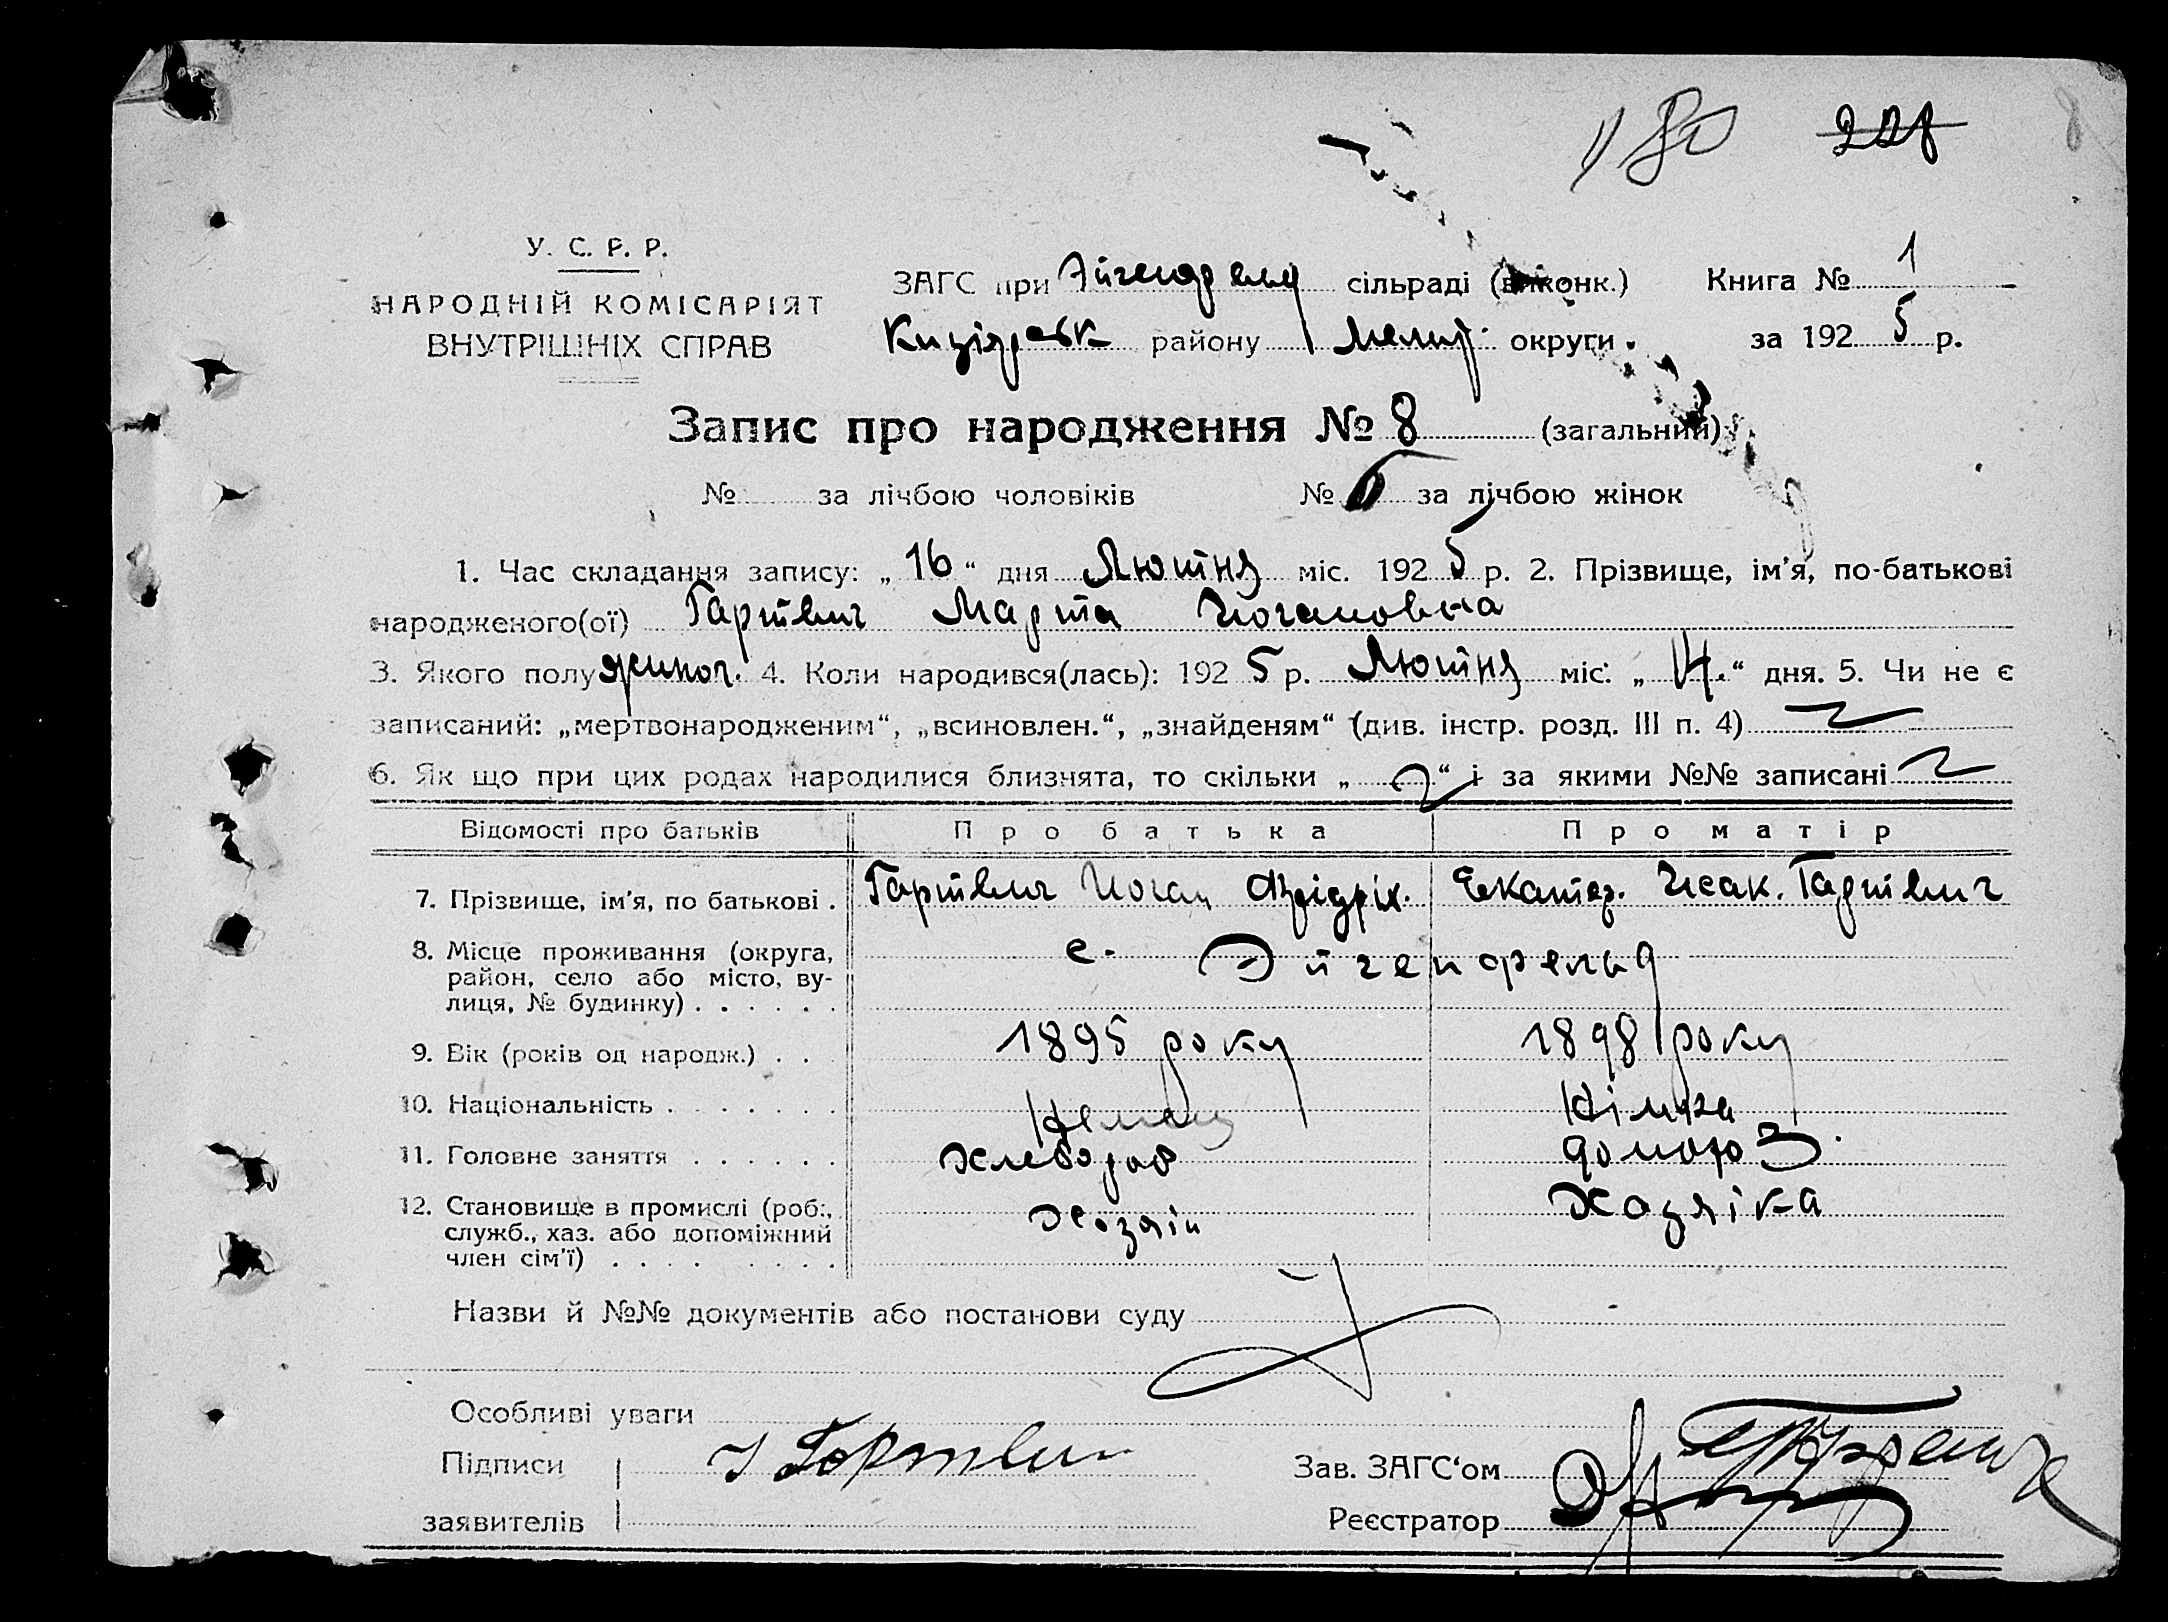 180 228 8
У. С. Р. Р.
НАРОДНІЙ КОМІСАРІЯТ
ВНУТРІШНІХ СПРАВ
ЗАГС при сільраді (виконк.) Книга № 1
району Меліт. округи. за 1925 р.
Запис про народження № 8 (загальний)
№ за лічбою чоловіків № за лічбою жінок
1. Час складання запису: „16“ дня Лютня міс. 1925 р. 2. Прізвище, ім'я, по-батькові
народженого(ої) Гартвиг Марта Йогановна
3. Якого полу жиноч. 4. Коли народився(лась): 1925 р. Лютня міс: „14.“ дня. 5. Чи не є
записаний: „мертвонародженим“, „всиновлен.“, „знайденям“ (див. інстр. розд. III п. 4)
6. Як що при цих родах народилися близнята, то скільки „ “ і за якими №№ записані
Відомості про батьків Про батька Про матір
7. Прізвище, ім'я, по батькові . Гартвиг Йоган Фрідріх. Екатер. Исак. Гартвиг
8. Місце проживання (округа, с. Эйгенфельд
район, село або місто, ву-
лиця, № будинку) . . . . . .
9. Вік (років од народж.) . . . 1895 року 1898 року
10. Національність . . . . . . . Немец Німка
11. Головне заняття . . . . . . Хлебороб
12. Становище в промислі (роб., Хозяін Хазяіка
служб., хаз. або допоміжний
член сім'ї) . . . . . . . .
Назви й №№ документів або постанови суду
Особливі уваги
Підписи И Гартвиг Зав. ЗАГС‘ом
заявителів Реєстратор